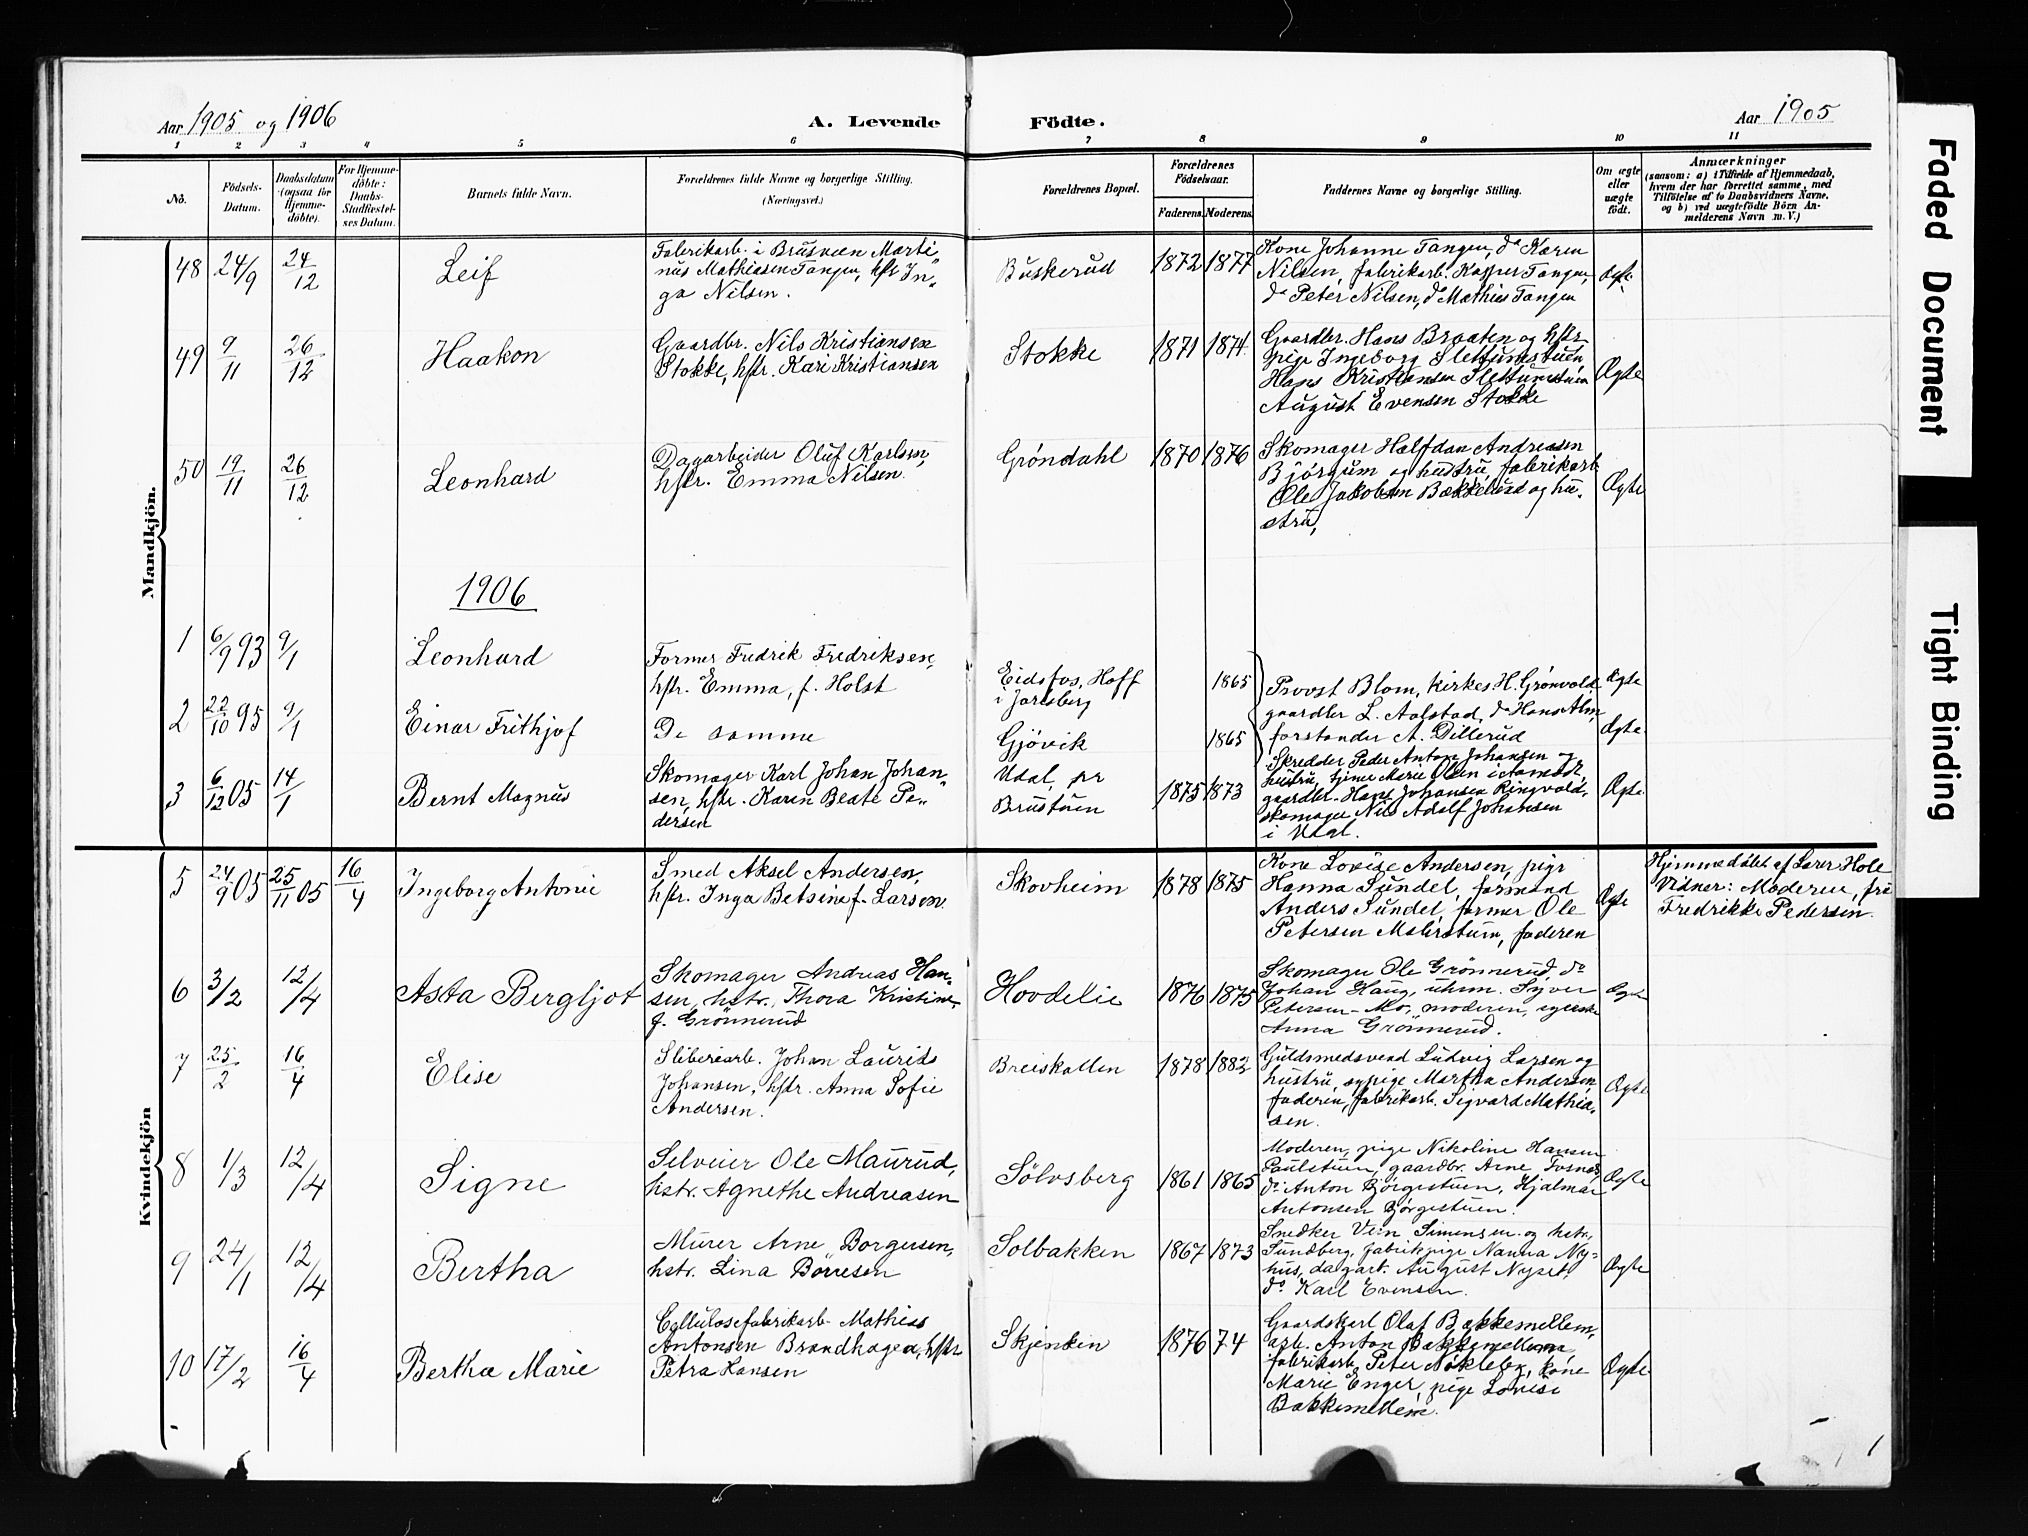 Aar 1905 og 1906
A. Levende
Födte.
Aar 1905
1 2 3 4 5 6 7 8 9 10 11
No.
Födsels-Datum.
Daabsdatum (ogsaa for Hjemme-döbte).
For Hjemme-döbte: Daabs-Stadfæstel-ses Datum.
Barnets fulde Navn.
Forældrenes fulde Navne og borgerlige Stilling.
(Næringsvei.)
Forældrenes Bopæl.
Forældrenes Födselsaar.
Faderens.
Moderens.
Faddernes Navne og borgerlige Stilling.
Om ægte eller uægte födt.
Anmærkninger
(saasom: a) i Tilfælde af Hjemmedaab,
hvem der har forrettet samme, med
Tilföielse af to Daabsvidners Navne,
og b) ved uægtefödte Börn An-
melderens Navn m. V.)
Mandkjön.
48 24/9 24/12 Leif
Fabrikarb. i Brusveen Marti-
nus Mathiasen Tangen, hstr In-
ga Nilsen.
Buskerud 1872 1877
Kone Johanne Tangen, do Karen
Nilsen, fabrikarb. Kasper Tangen,
do Peter Nilsen, do Mathias Tangen
Ægte
49 9/11 26/12 Haakon
Gaardbr. Nils Kristiansen
Stokke, hstr. Kari Kristiansen
Stokke 1871 1874
Gaardbr. Hans Braaten og hstr
pige Ingeborg Slettumstuen
Hans Kristiansen Slettumstuen
August Evensen Stokke
Ægte
50 19/11 26/12 Leonhard
Dagarbeider Oluf Karlsen,
hstr. Emma Nilsen.
Gröndahl 1870 1876
Skomager Halfdan Andreasen
Björgum og hustru, fabrikarb
Ole Jakobsen Bækkelund og hu-
stru,
Ægte
1906
1 6/9 93 9/1 Leonhard
Former Fredrik Fredriksen,
hstr. Emma, f. Holst
Eidsfos, Hoff
i Jarlsberg
1865
Provst Blom, kirkes. H. Grønvold
Ægte
2 22/10 95 9/1 Einar Frithjof
De samme
Gjövik
1865
gaardbr L. Aalstad, do Hans Alm,
forstander A. Dillerud
Ægte
3 6/12 05 14/1 Bernt Magnus
Skomager Karl Johan Johan-
sen, hstr. Karen Beate Pe-
dersen
Udal, pr
Brustuen
1875 1873
Skredder Peder Anton Johansen og
hustru, tjener Marie Olsen i Aamodt
gaardbr. Hans Johansen Ringvold,
skomager Nils Adolf Johansen
i Udal.
Ægte
Kvindekjön
5 24/9 05 25/11 05 16/4 Ingeborg Antonie
Smed Aksel Andersen,
hstr. Inga Betsine f. Larsen
Skovheim 1878 1875
Kone Lovise Andersen, pige
Hanna Sundel, formand
Anders Sundel, former Ole
Petersen Mælerstuen, faderen
Ægte
Hjemmedöbt af Lærer Hole
Vidner: Moderen, fru
Fredrikke Pedersen.
6 3/2 12/4 Asta Bergljot
Skomager Andreas Han-
sen, hstr. Thora Kristine
f. Grönnerud
Hovdelie 1876 1875
Skomager Ole Grönnerud, do
Johan Haug, uhrm. Syver
Petersen-Mo, moderen, syerske
Anna Grönnerud.
Ægte
7 25/2 16/4 Elise
Sliberiarb. Johan Laurids
Johansen, hstr. Anna Sofie
Andersen.
Breiskallen 1878 1882
Guldsmedsvend Ludvig Larsen og
hustru, sypige Martha Andersen
faderen, fabrikarb. Sigvard Mathia-
sen.
Ægte
8 1/3 12/4 Signe
Selveier Ole Maurud,
hstr. Agnethe Andreasen
Sölvsberg 1861 1865
Moderen, pige Nikoline Hansen
Paulstuen, gaardbr. Arne Fosnæs,
do Anton Björgestuen, Hjalmar
Antonsen Björgestuen.
Ægte
9 24/1 12/4 Bertha
Murer Arne Borgersen,
hstr. Lina Börresen
Solbakken 1867 1873
Snedker Vein Simensen og hstr.
Sundberg, fabrikpige Nanna Ny-
hus, dagarb. August Nyset,
do. Karl Evensen.
Ægte
10 17/2 16/4 Bertha Marie
Cellulosefabrikarb Mathias
Antonsen Brandhagen, hstr
Petra Hansen
Skjenken 1876 74
Gaardskarl Olaf Bækkemellem,
arb. Anton Bækkemellem
fabrikarb Peter Nökleby, kone
Marie Enger, pige Lovise
Bækkemellem.
Ægte
Faded Document
Tight Binding